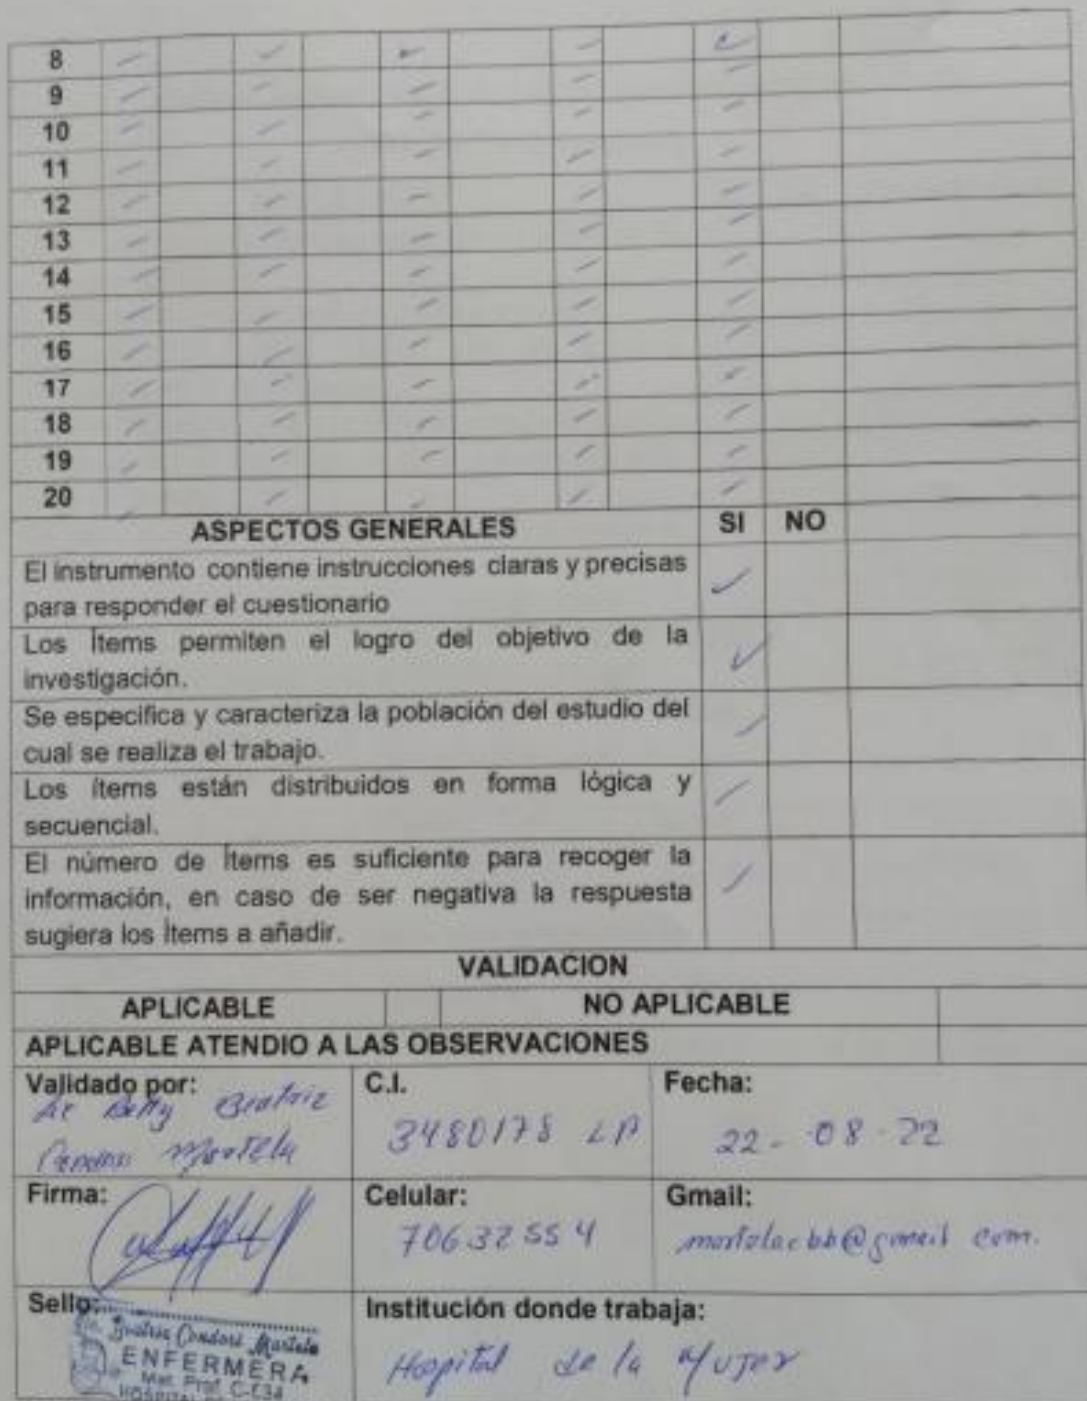 8
9
10
11
12
13
14
15
16
17
18
19
20
ASPECTOS GENERALES SI NO
El instrumento contiene instrucciones claras y precisas
para responder el cuestionario
Los Ítems permiten el logro del objetivo de la
investigación.
Se especifica y caracteriza la población del estudio del
cual se realiza el trabajo.
Los ítems están distribuidos en forma lógica y
secuencial.
El número de Ítems es suficiente para recoger la
información, en caso de ser negativa la respuesta
sugiera los Ítems a añadir.
VALIDACION
APLICABLE NO APLICABLE
APLICABLE ATENDIO A LAS OBSERVACIONES
Validado por: C.I. Fecha:
Lic Betty Beatriz
3480178 LP 22-08-22
Martela
Firma: Celular: Gmail:
70632554
Sello: Institución donde trabaja:
Beatriz Condori Martela
ENFERMERA
Mat. Prof.
HOSPITAL
Hospital de la Mujer